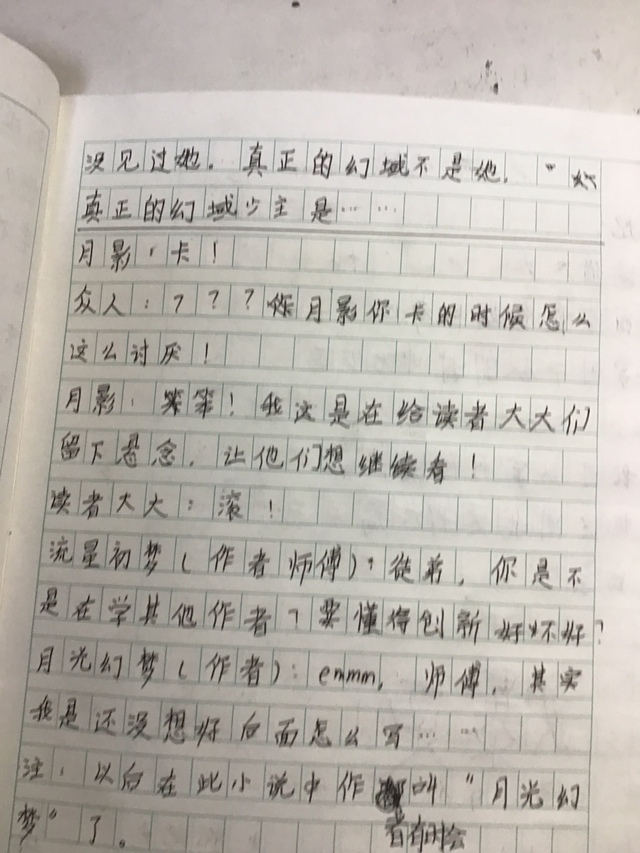 没见过她。真正的幻域不是她，“
真正的幻域少主是……
月影：卡！
众人：？？？你月影你卡的时候怎么
这么讨厌！
月影：笨笨！我这是在给读者大大们
留下悬念，让他们想继续看！
读者大大：滚！
流星初梦（作者师傅）：徒弟，你是不
是在学其他作者？要懂得创新好不好？
月光幻梦（作者）：emmm，师傅，其实
我是还没想好后面怎么写……
注：以后在此小说中作者有时会叫“月光幻
梦”了。